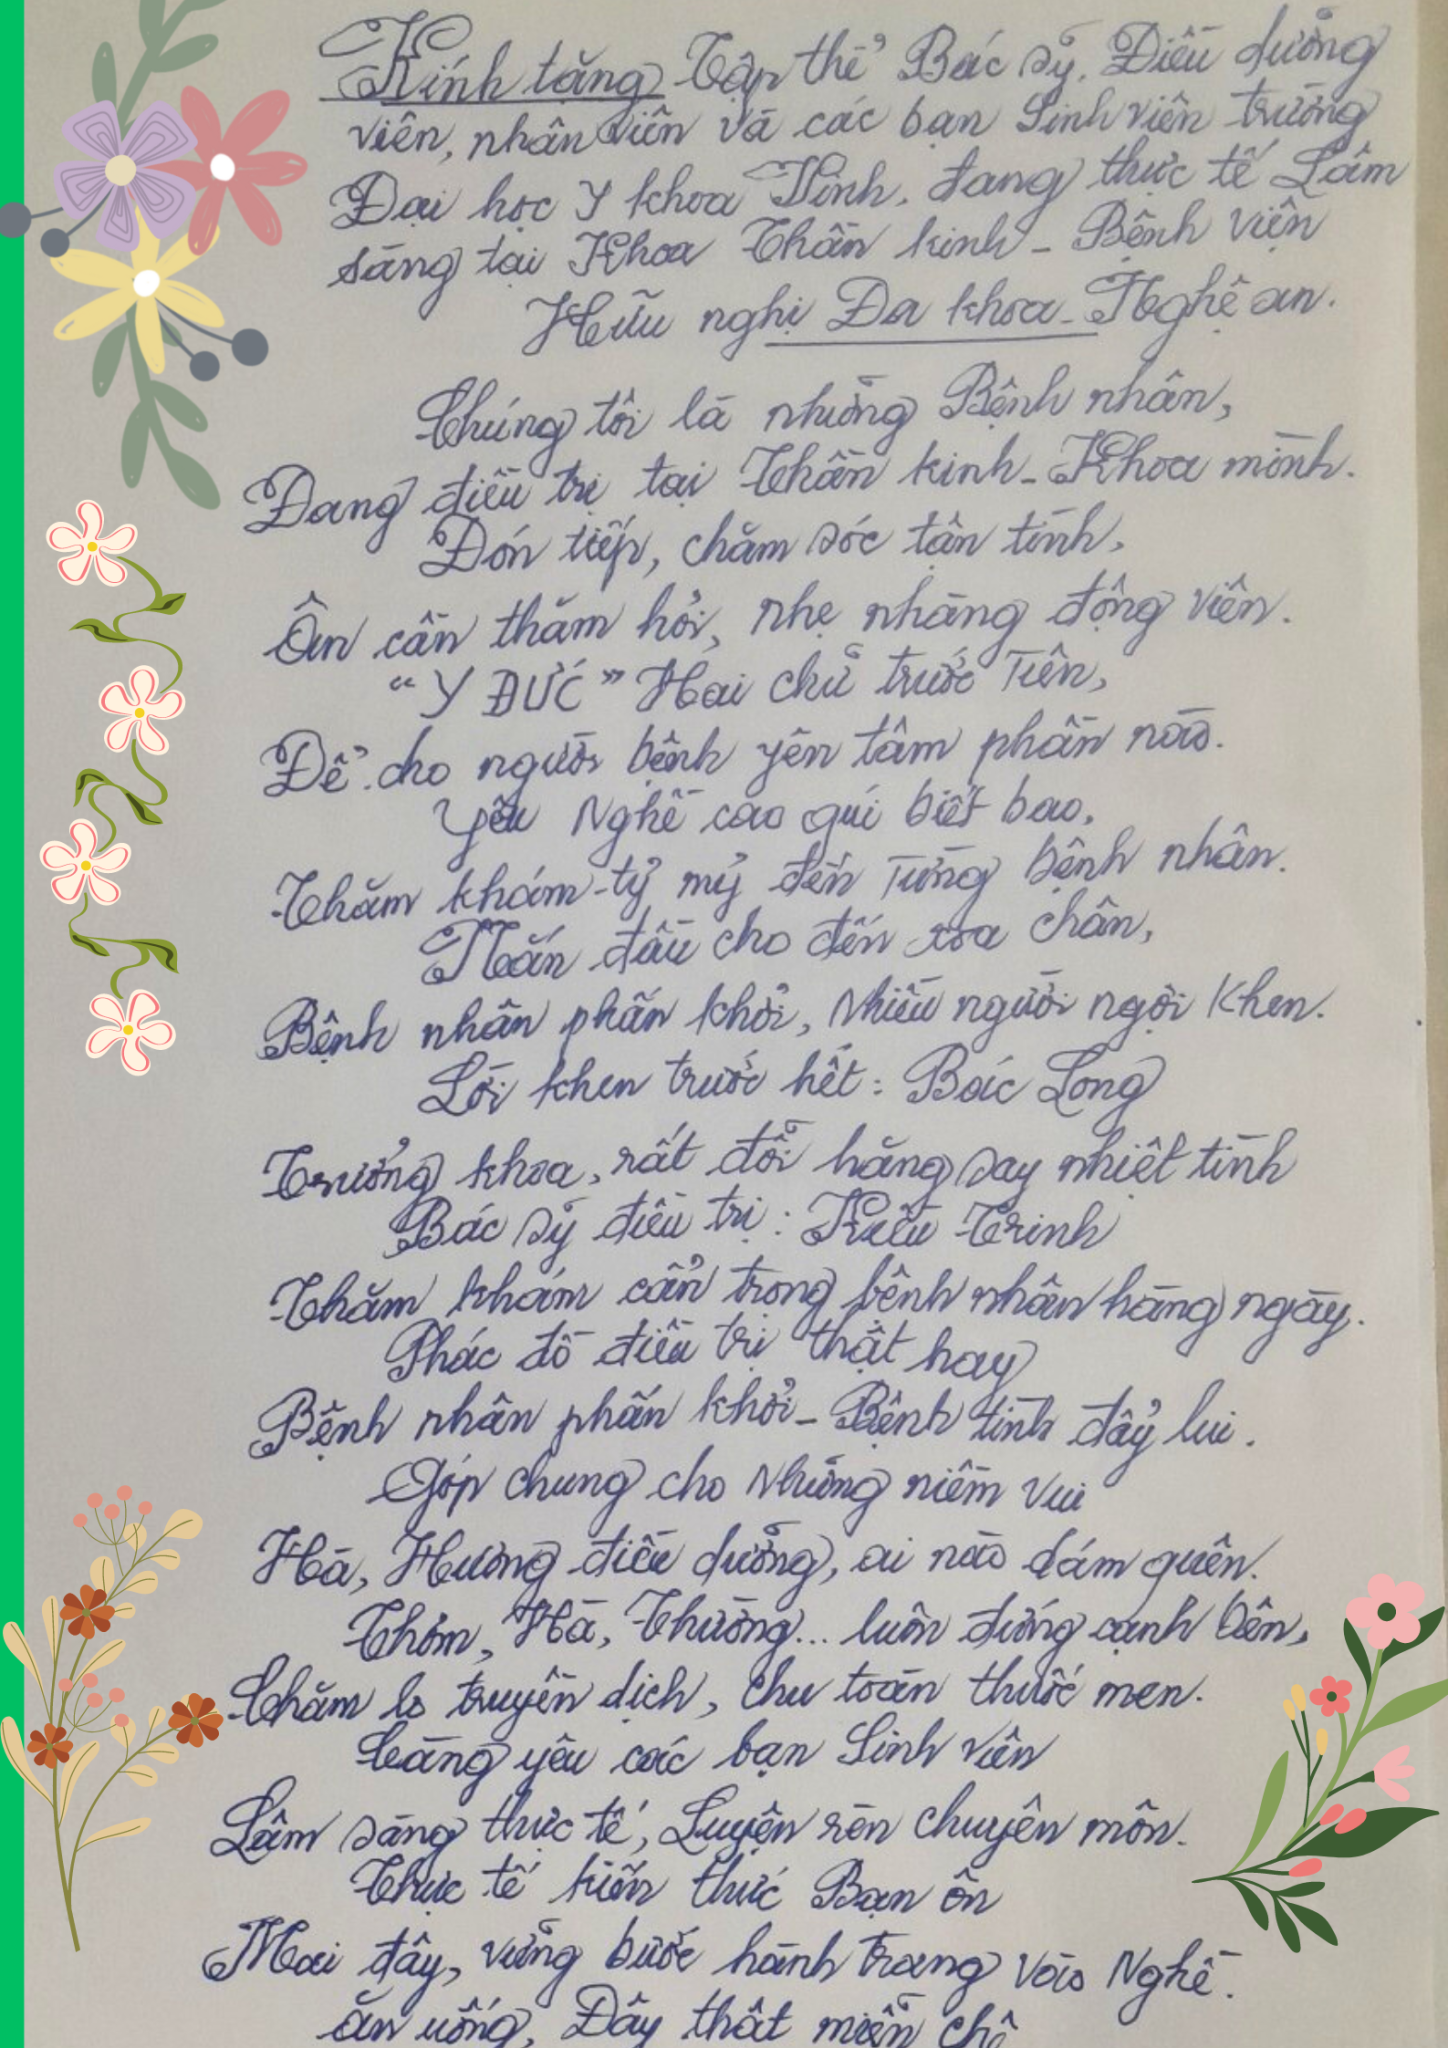 Kính tặng Tập thể Bác sỹ, Điều dưỡng
viên, nhân viên và các bạn Sinh viên trường
Đại học Y khoa Vinh, đang thực tế Lâm
sàng tại Khoa Thần kinh - Bệnh viện
Hữu nghị Đa khoa - Nghệ an.
Chúng tôi là những Bệnh nhân,
Đang điều trị tại Thần kinh - Khoa mình.
Đón tiếp, chăm sóc tận tình,
Ân cần thăm hỏi, nhẹ nhàng động viên.
"Y ĐỨC" Hai chữ trước Tiên,
Để cho người bệnh yên tâm phần nào.
Yêu Nghề cao quí biết bao,
Thăm khám - tỷ mỷ đến Từng bệnh nhân.
Nắn đầu cho đến xoa chân,
Bệnh nhân phấn khởi, Nhiều người ngợi Khen.
Lời khen trước hết: Bác Long
Trưởng khoa, rất đỗi hăng say nhiệt tình
Bác sỹ điều trị: Kiều Trinh
Thăm khám cẩn trọng bệnh nhân hàng ngày.
Phác đồ điều trị thật hay
Bệnh nhân phấn khởi - Bệnh tình đẩy lui.
Góp chung cho Những niềm Vui
Hà, Hương điều dưỡng, ai nào dám quên.
Thơm, Hà, Thường... luôn đứng cạnh bên,
Chăm lo truyền dịch, chu toàn thuốc men.
Càng yêu các bạn Sinh viên
Lâm sàng thực tế, Luyện rèn chuyên môn.
Thực tế kiến thức Bạn ôn
Mai đây, vững bước hành trang vào Nghề.
ăn uống, Đây thật miễn chê